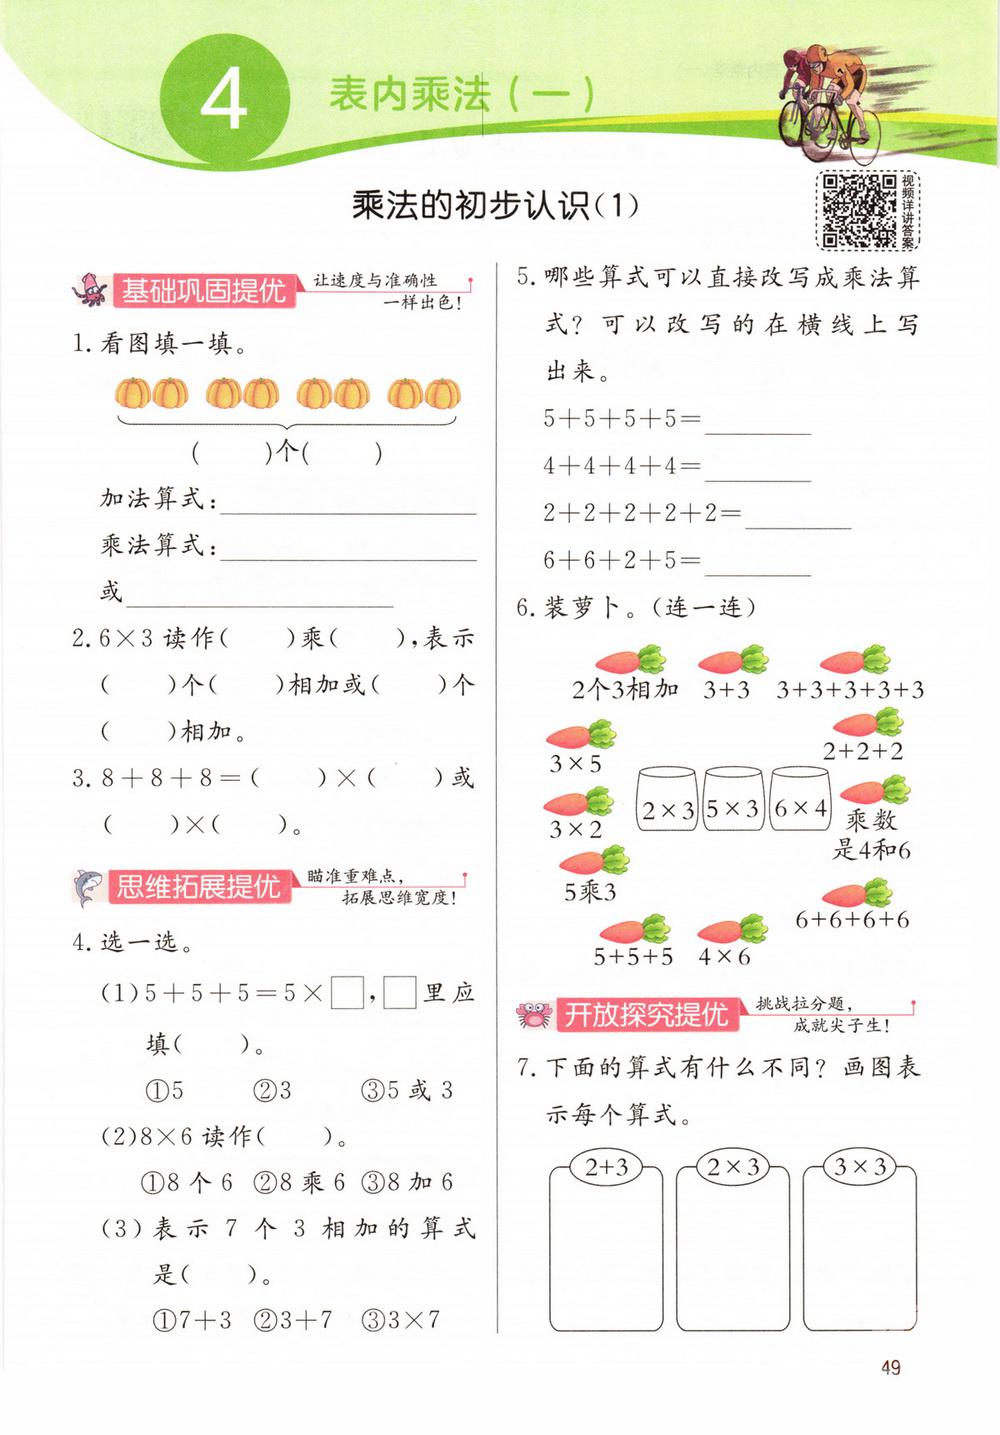 4
表内乘法(一)
乘法的初步认识(1)
视频详讲答案
基础巩固提优
让速度与准确性
一样出色!
1. 看图填一填。
(  )个(  )
加法算式:
乘法算式:
或
2. 6×3 读作(  )乘(  ),表示
(  )个(  )相加或(  )个
(  )相加。
3. 8+8+8=(  )×(  )或
(  )×(  )。
思维拓展提优
瞄准重难点,
拓展思维宽度!
4. 选一选。
(1)5+5+5=5×□,□里应
填(  )。
①5 ②3 ③5 或 3
(2)8×6 读作(  )。
①8 个 6 ②8 乘 6 ③8 加 6
(3)表示 7 个 3 相加的算式
是(  )。
①7+3 ②3+7 ③3×7
5. 哪些算式可以直接改写成乘法算
式?可以改写的在横线上写
出来。
5+5+5+5=
4+4+4+4=
2+2+2+2+2=
6+6+2+5=
6. 装萝卜。(连一连)
2个3相加 3+3 3+3+3+3+3
3×5
2+2+2
2×3 5×3 6×4
3×2
乘数
是4和6
5乘3
6+6+6+6
5+5+5 4×6
开放探究提优
挑战拉分题,
成就尖子生!
7. 下面的算式有什么不同?画图表
示每个算式。
2+3 2×3 3×3
49